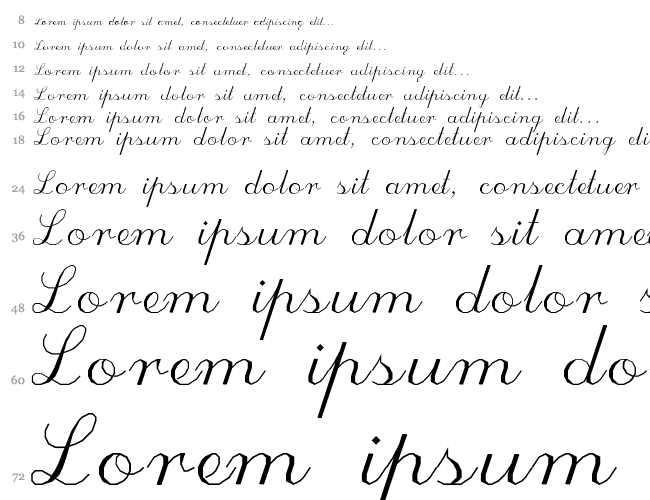 8 Lorem ipsum dolor sit amet, consectetuer adipiscing elit...
10 Lorem ipsum dolor sit amet, consectetuer adipiscing elit...
12 Lorem ipsum dolor sit amet, consectetuer adipiscing elit...
14 Lorem ipsum dolor sit amet, consectetuer adipiscing elit...
16 Lorem ipsum dolor sit amet, consectetuer adipiscing elit...
18 Lorem ipsum dolor sit amet, consectetuer adipiscing eli
24 Lorem ipsum dolor sit amet, consectetuer
36 Lorem ipsum dolor sit ame
48 Lorem ipsum dolor s
60 Lorem ipsum do
72 Lorem ipsum